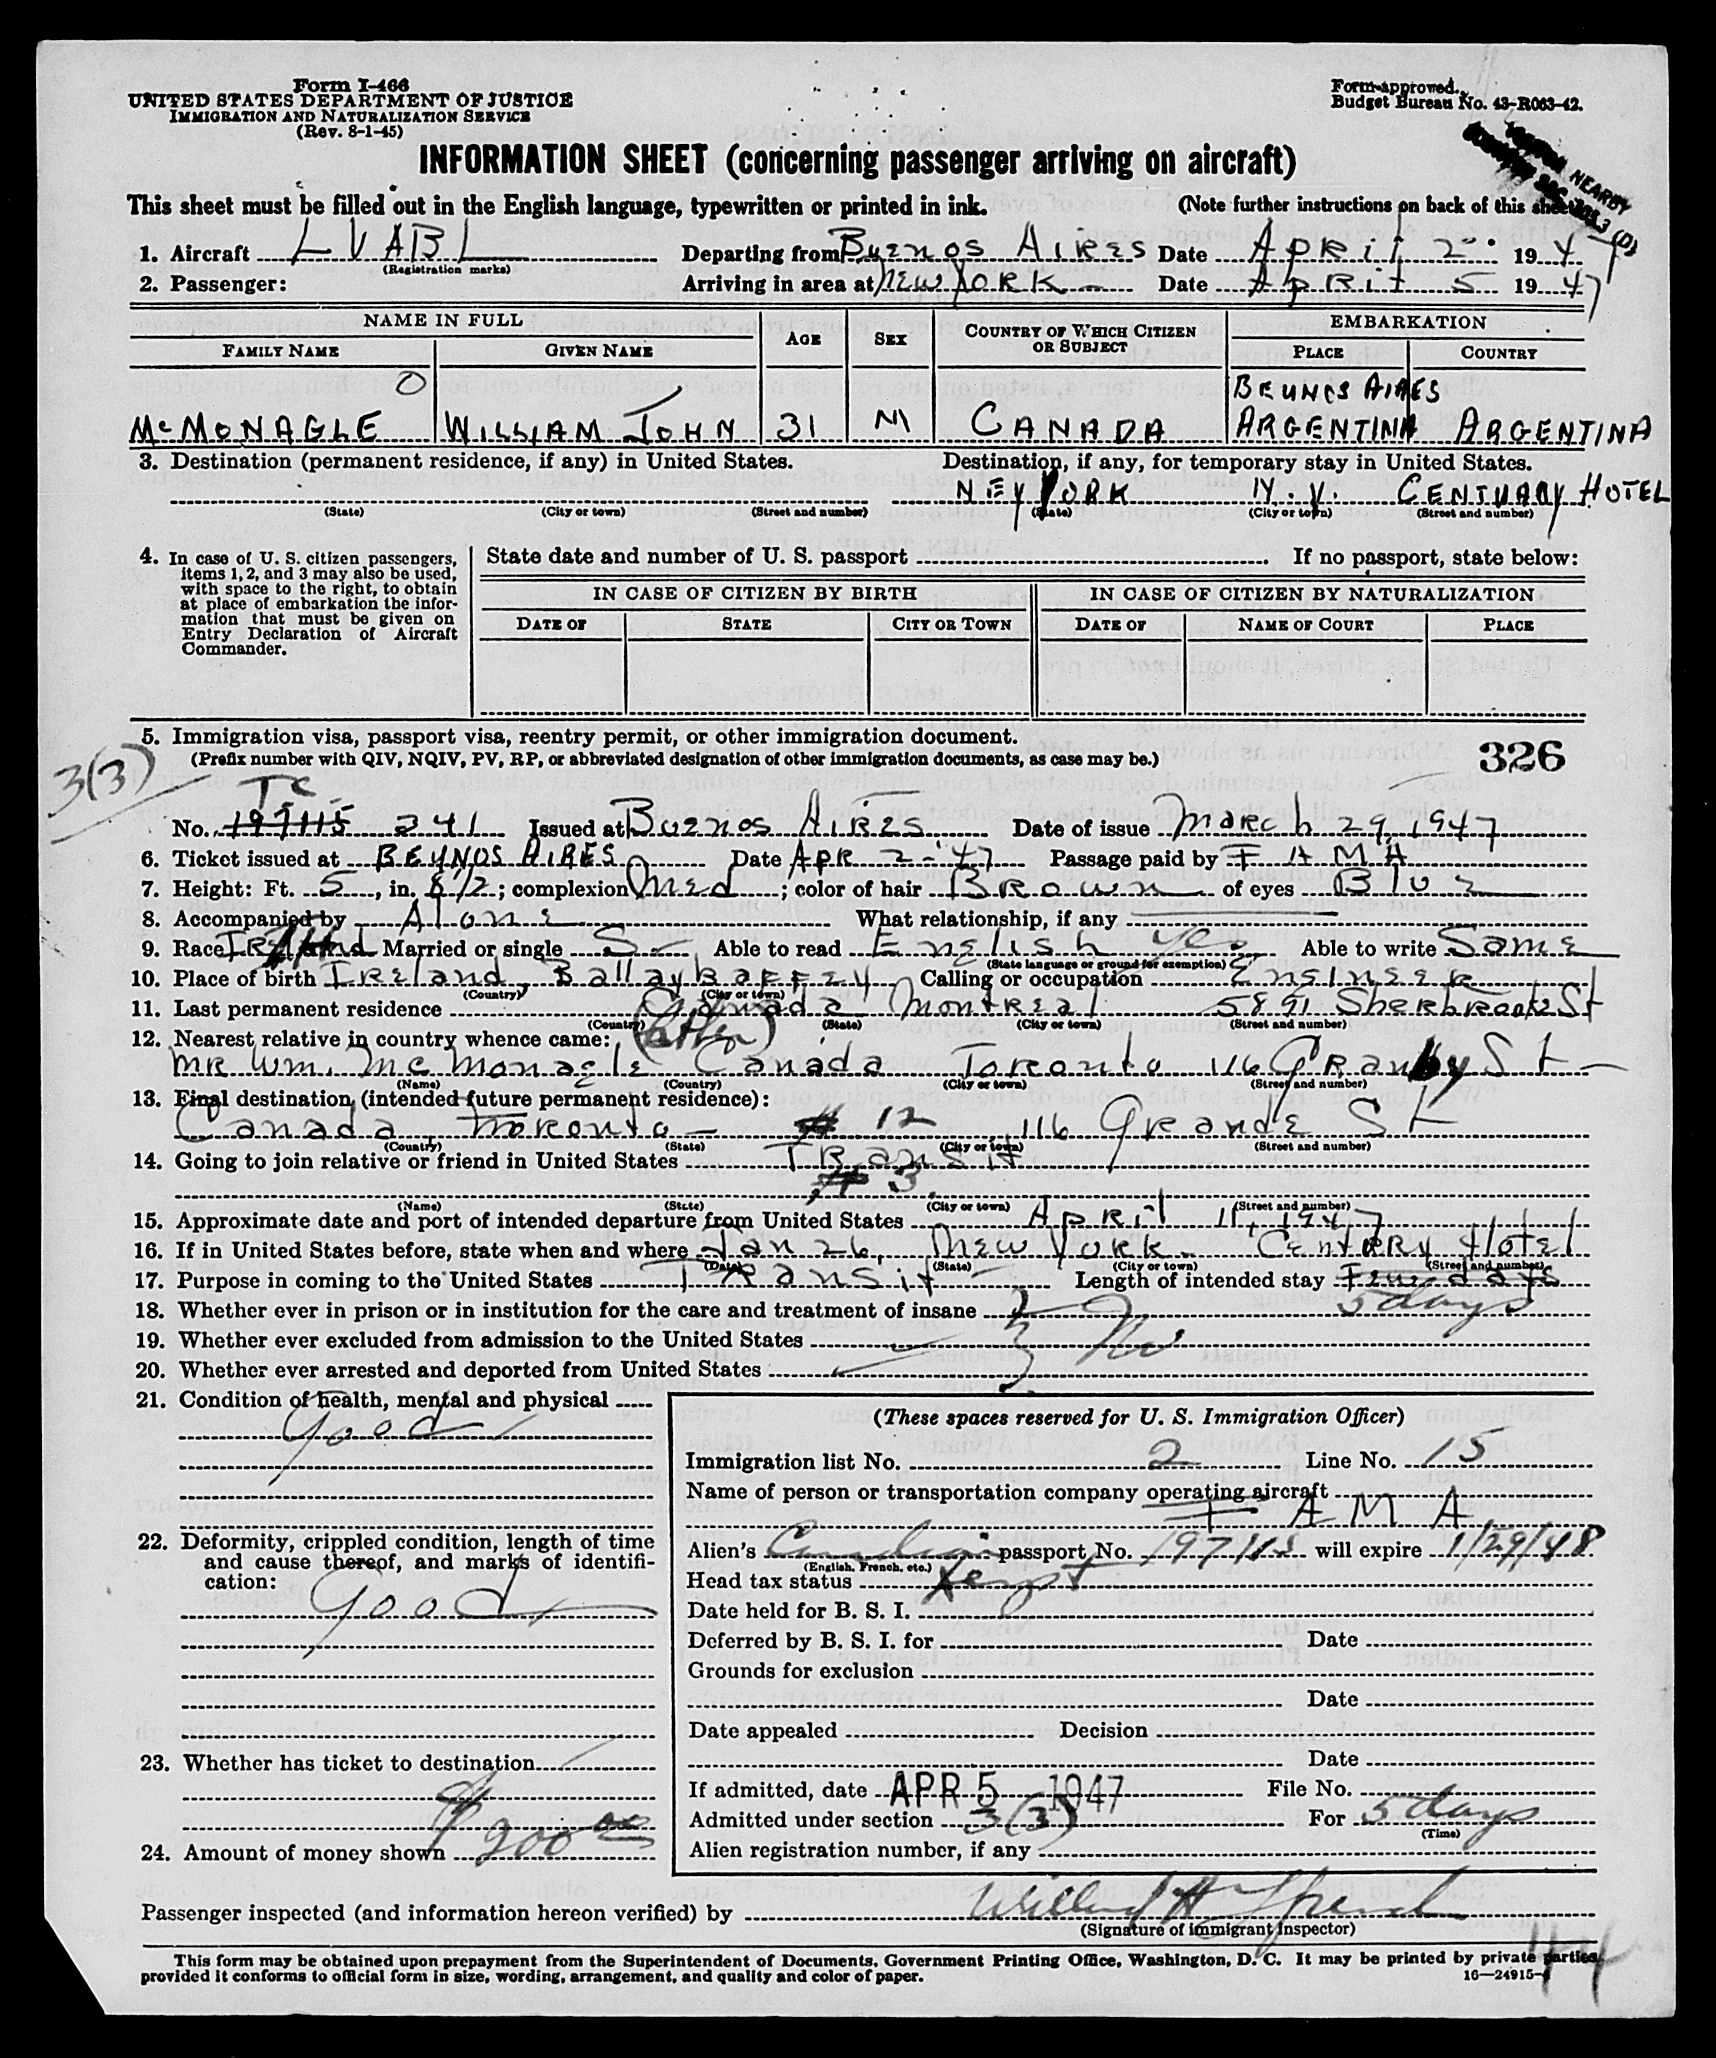 Form I-466
UNITED STATES DEPARTMENT OF JUSTICE
IMMIGRATION AND NATURALIZATION SERVICE
(Rev. 8-1-45)
Form approved.
Budget Bureau No. 43-R063-42.
INFORMATION SHEET (concerning passenger arriving on aircraft)
This sheet must be filled out in the English language, typewritten or printed in ink. (Note further instructions on back of this sheet)
NEARBY
1. Aircraft LVABL Departing from BUENOS AIRES Date April 2 1947
(Registration marks)
2. Passenger: Arriving in area at NEW YORK - Date April 5 1947
NAME IN FULL AGE SEX COUNTRY OF WHICH CITIZEN OR SUBJECT EMBARKATION
FAMILY NAME GIVEN NAME PLACE COUNTRY
O BEUNOS AIRES
McMONAGLE WILLIAM JOHN 31 M CANADA ARGENTINA ARGENTINA
3. Destination (permanent residence, if any) in United States. Destination, if any, for temporary stay in United States.
NEY YORK N.Y. CENTUARY HOTEL
(State) (City or town) (Street and number) (State) (City or town) (Street and number)
4. In case of U. S. citizen passengers, items 1, 2, and 3 may also be used, with space to the right, to obtain at place of embarkation the information that must be given on Entry Declaration of Aircraft Commander.
State date and number of U. S. passport If no passport, state below:
IN CASE OF CITIZEN BY BIRTH IN CASE OF CITIZEN BY NATURALIZATION
DATE OF STATE CITY OR TOWN DATE OF NAME OF COURT PLACE
5. Immigration visa, passport visa, reentry permit, or other immigration document.
(Prefix number with QIV, NQIV, PV, RP, or abbreviated designation of other immigration documents, as case may be.) 326
3(3)
TC
No. 197115 341 Issued at Buenos Aires Date of issue March 29, 1947
6. Ticket issued at BEUNOS AIRES Date Apr 2-47 Passage paid by FAMA
7. Height: Ft. 5, in. 8 1/2; complexion Med; color of hair Brown of eyes Blue
8. Accompanied by Alone What relationship, if any
9. Race Married or single S. Able to read English yes Able to write Same
(State language or ground for exemption)
10. Place of birth Ireland, Ballaybaffey Calling or occupation Engineer
(Country) (City or town)
11. Last permanent residence Canada Montreal 5891 Sherbrooke St
(Country) (State) (City or town) (Street and number)
12. Nearest relative in country whence came: (father)
MR Wm. McMonagle Canada Toronto 116 Granby St -
(Name) (Country) (City or town) (Street and number)
13. Final destination (intended future permanent residence):
Canada, Toronto - # 12 116 Grande St
(Country) (State) (City or town) (Street and number)
14. Going to join relative or friend in United States Transit
# 3.
(Name) (State) (City or town) (Street and number)
15. Approximate date and port of intended departure from United States April 11, 1947
16. If in United States before, state when and where Jan 26, New York - Century Hotel
(Date) (State) (City or town) (Street and number)
17. Purpose in coming to the United States Transit - Length of intended stay Few days
5 days
18. Whether ever in prison or in institution for the care and treatment of insane
19. Whether ever excluded from admission to the United States No
20. Whether ever arrested and deported from United States
21. Condition of health, mental and physical
Good
22. Deformity, crippled condition, length of time and cause thereof, and marks of identification:
Good
23. Whether has ticket to destination
24. Amount of money shown $200 00
(These spaces reserved for U. S. Immigration Officer)
Immigration list No. 2 Line No. 15
Name of person or transportation company operating aircraft
FAMA
Alien's Canadian passport No. 197115 will expire 1/29/48
(English, French, etc.)
Head tax status Xempt
Date held for B. S. I.
Deferred by B. S. I. for Date
Grounds for exclusion
Date
Date appealed Decision
Date
If admitted, date APR 5 1947 File No.
Admitted under section 3(3) For 5 days
(Time)
Alien registration number, if any
Passenger inspected (and information hereon verified) by
(Signature of immigrant inspector)
44
This form may be obtained upon prepayment from the Superintendent of Documents, Government Printing Office, Washington, D. C. It may be printed by private parties
provided it conforms to official form in size, wording, arrangement, and quality and color of paper. 16—24915-1